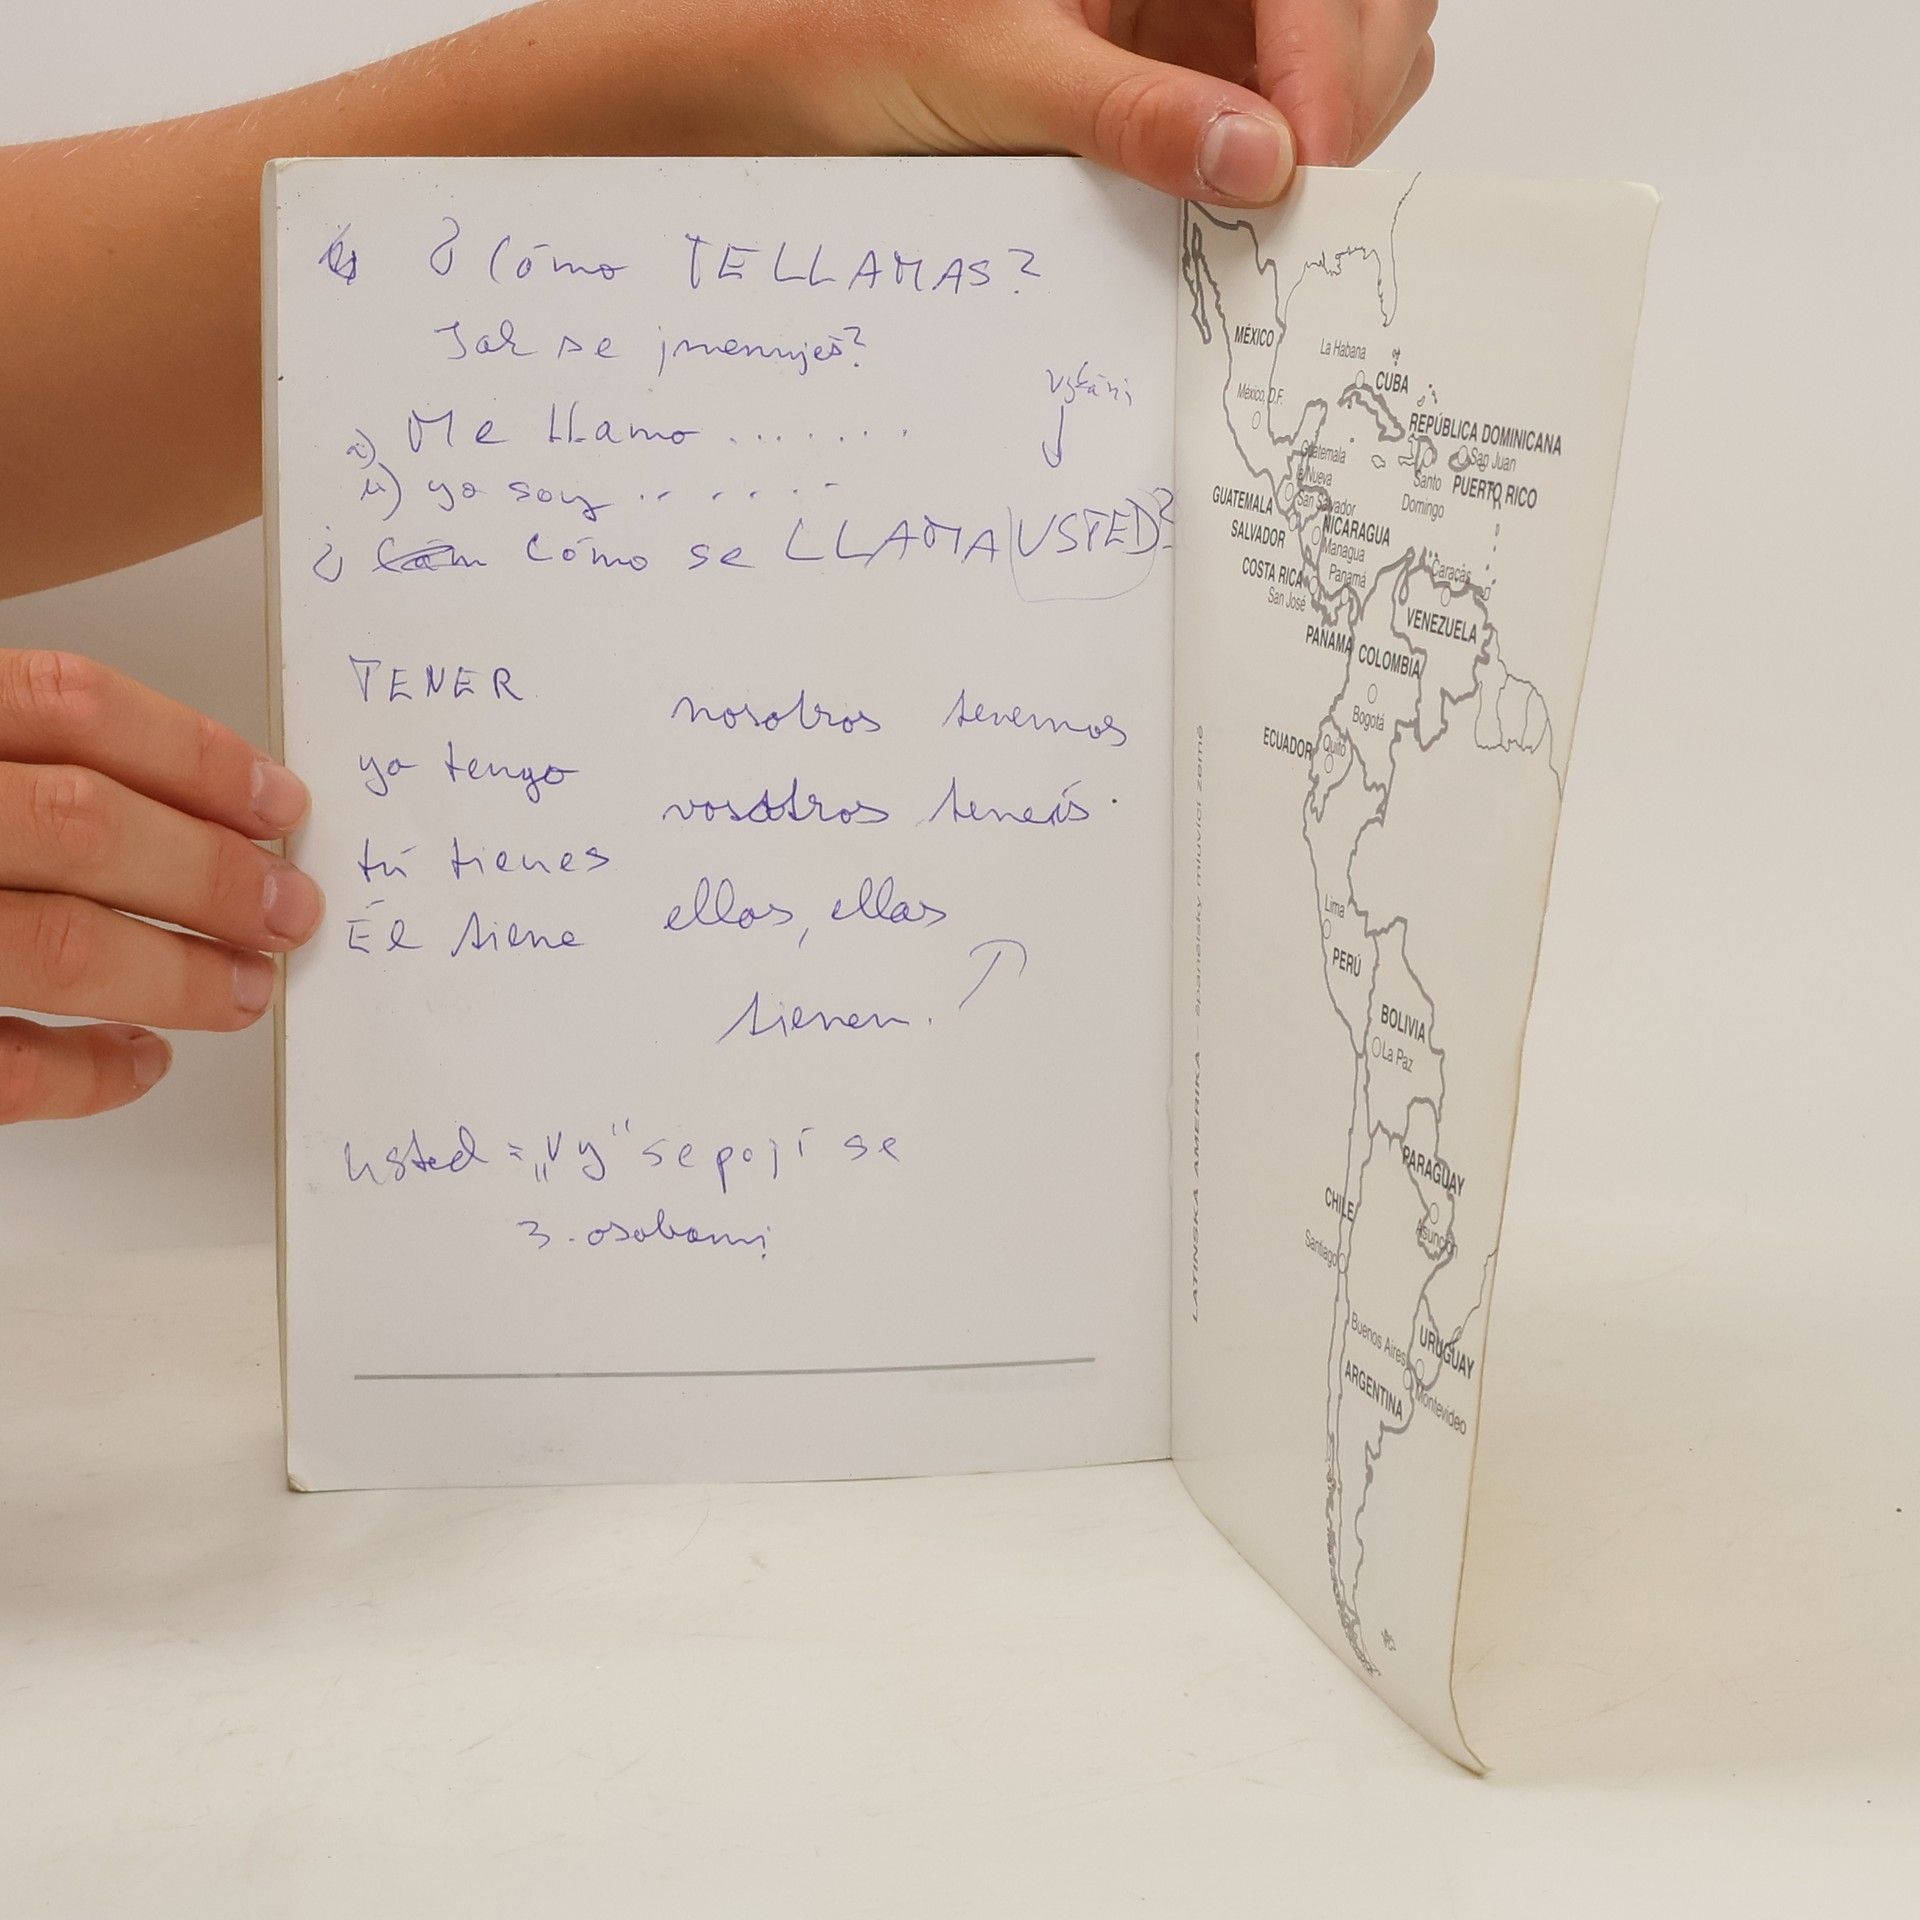 ¿ Cómo TE LLAMAS?
Jak se jmenuješ?
Me llamo .......
yo soy ......
vykání
¿ Cómo se LLAMA USTED?
TENER
yo tengo
tú tienes
Él tiene
nosotros tenemos
vosotros teneís.
ellos, ellas
tienen.
usted = „vy“ se pojí se
3. osobami
MÉXICO
La Habana
CUBA
México, D.F.
REPÚBLICA DOMINICANA
San Juan
Guatemala
la Nueva
Santo
Domingo
PUERTO RICO
GUATEMALA
San Salvador
SALVADOR
NICARAGUA
Managua
COSTA RICA
Panamá
Caracas
San José
VENEZUELA
PANAMÁ
COLOMBIA
Bogotá
ECUADOR
Quito
Lima
PERÚ
BOLIVIA
La Paz
PARAGUAY
CHILE
Asunción
Santiago
Buenos Aires
URUGUAY
ARGENTINA
Montevideo
LATINSKÁ AMERIKA – španělsky mluvící země